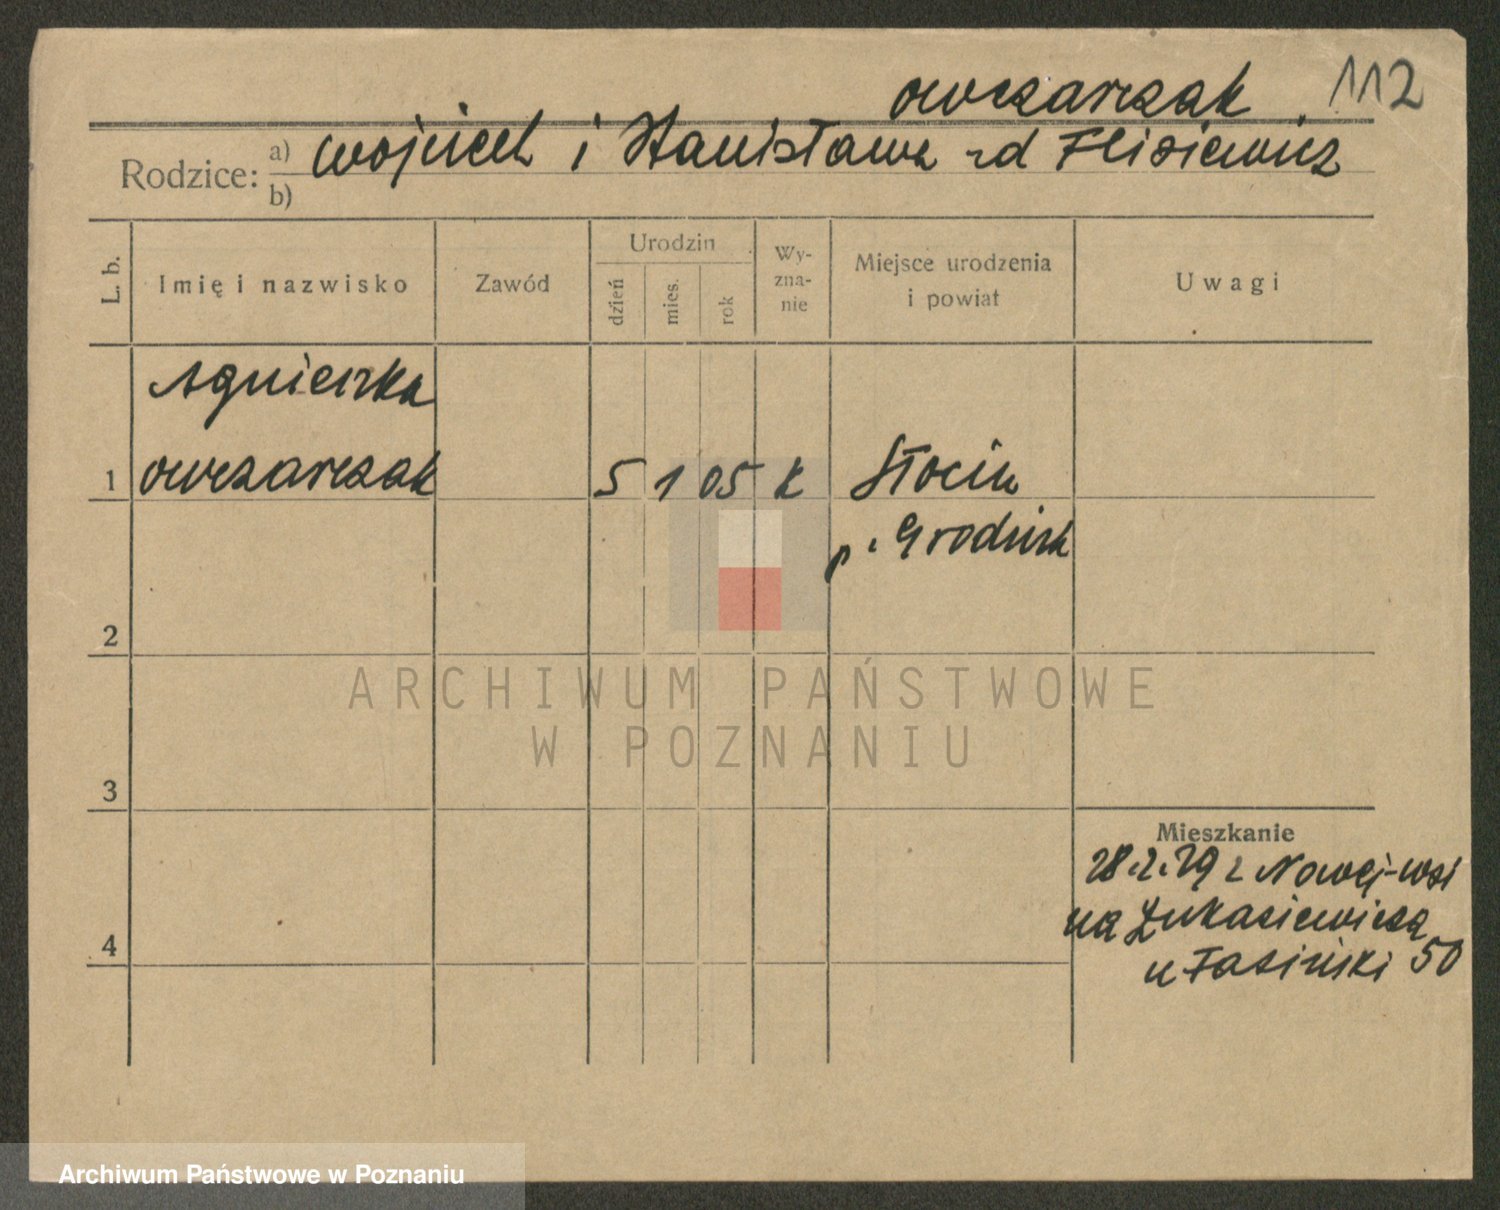 Owczarczak 112
Rodzice: a) Wojciech i Stanisława zd Flisiewicz
b)
L. b.
Imię i nazwisko
Zawód
Urodzin
dzień
mies.
rok
Wy-
zna-
nie
Miejsce urodzenia
i powiat
Uwagi
Agnieszka
1 Owczarczak 5 1 05 k Słocin
p. Grodzisk
2
3
4
Mieszkanie
28.2.29 z Nowej-wsi
na Łukasiewicza
u Fasiński 50
ARCHIWUM PAŃSTWOWE
W POZNANIU
Archiwum Państwowe w Poznaniu